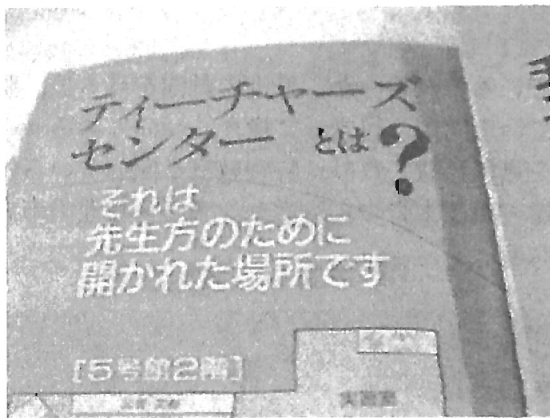 ティーチャーズ
センター とは?
それは
先生方のために
開かれた場所です
[5号館2階]